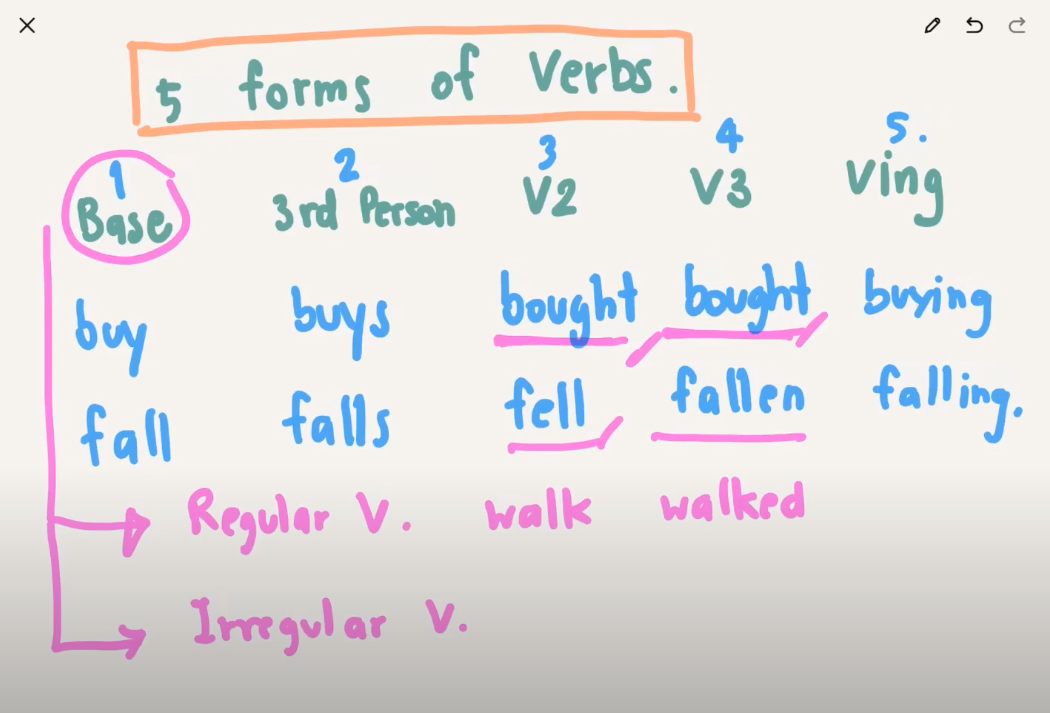 5 forms of Verbs.
1 2 3 4 5.
Base 3rd Person V2 V3 Ving
buy buys bought bought buying
fall falls fell fallen falling.
Regular V. walk walked
Irregular V.